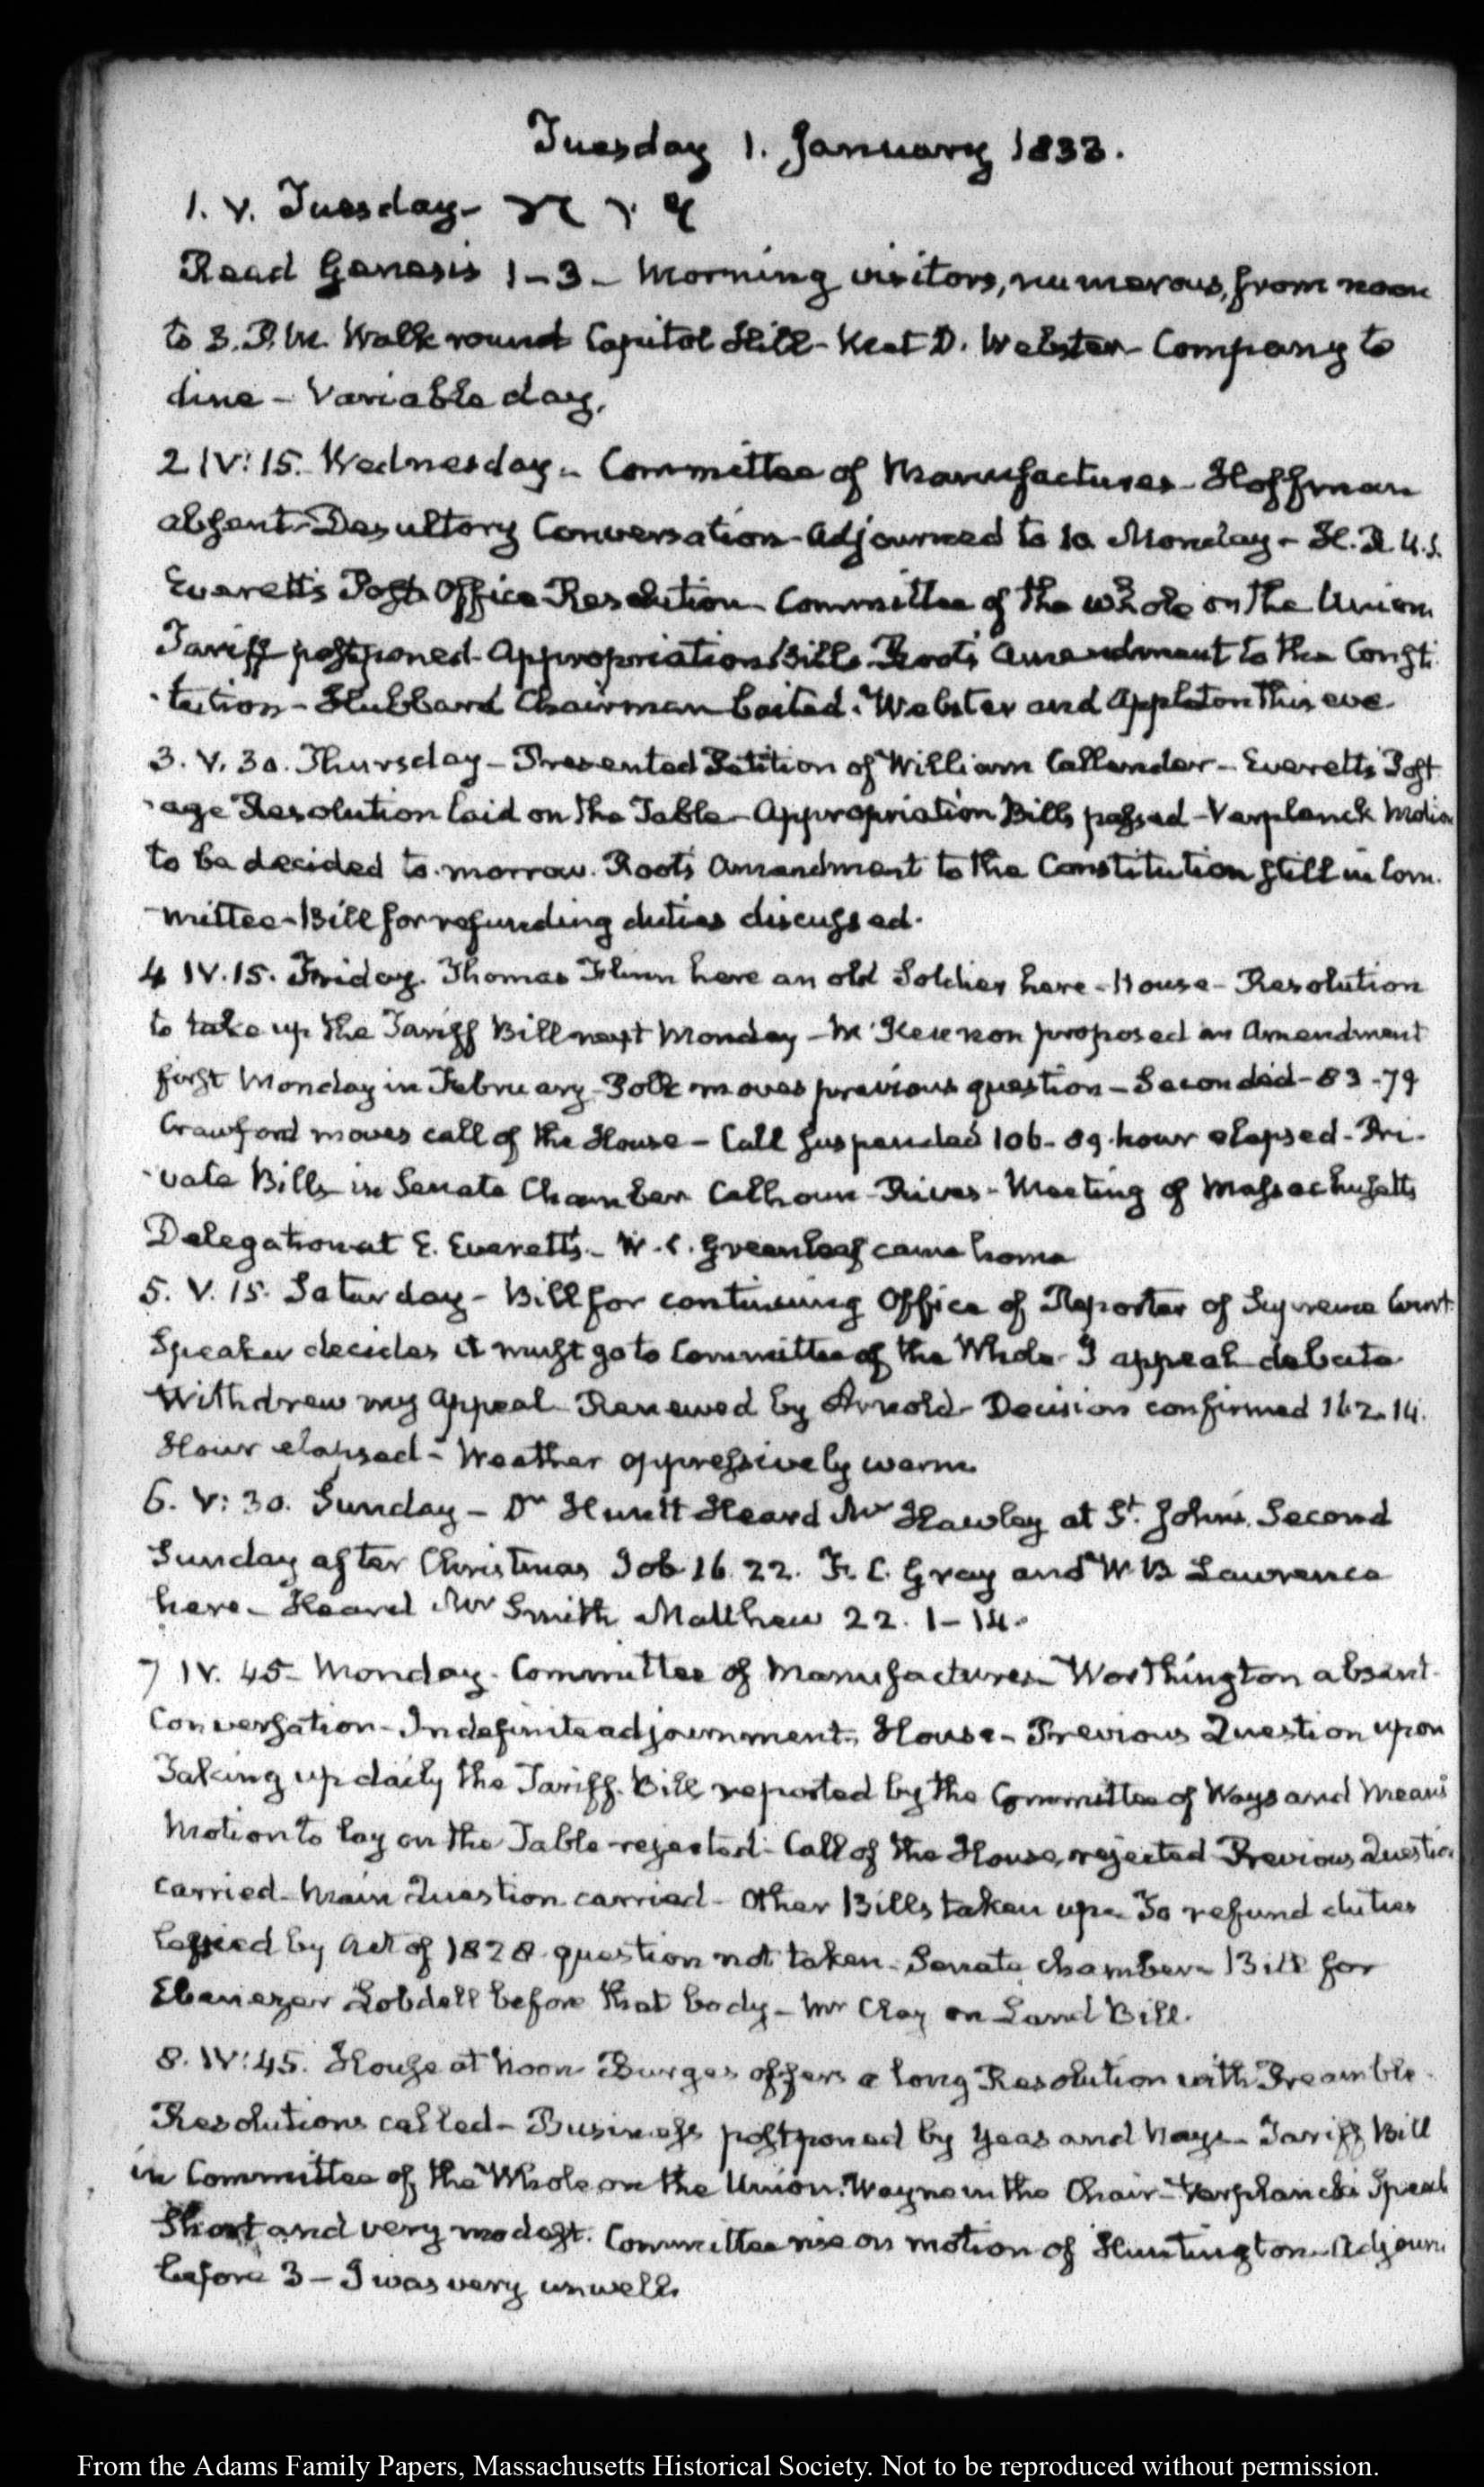 Tuesday 1. January 1833.
1. V. Tuesday-
Read Genesis 1-3- Morning visitors, numerous, from noon
to 3. P.M. Walk round Capitol Hill- Met D. Webster- Company to
dine - Variable day.
2 IV:15. Wednesday- Committee of Manufactures- Hoffman
absent- Desultory Conversation- Adjourned to 10 Monday- H.R.U.S.
Everett's Post Office Resolution- Committee of the whole on the Union
Tariff postponed- Appropriation Bills- Root's Amendment to the Consti
-tution- Hubbard Chairman baited. Webster and Appleton this eve
3. V. 30. Thursday- Presented Petition of William Callender- Everett's Post
-age Resolution laid on the Table- Appropriation Bills passed- Verplanck Motion
to be decided to-morrow. Root's Amendment to the Constitution still in Com-
-mittee- Bill for refunding duties discussed.
4 IV.15. Friday. Thomas Flinn here an old Soldier here- House- Resolution
to take up the Tariff Bill next Monday- McKennon proposed an Amendment
first Monday in February- Polk moves previous question- Seconded- 83-79
Crawford moves call of the House- Call suspended 106-89. hour elapsed- Pri-
-vate Bills- in Senate Chamber Calhoun- Rives- Meeting of Massachusetts
Delegation at E. Everett's.- W.C. Greenleaf came home
5. V. 15. Saturday- Bill for continuing Office of Reporter of Supreme Court
Speaker decides it must go to Committee of the Whole- I appeal- debate
Withdrew my appeal- Renewed by Arnold- Decision confirmed 162-14.
Hour elapsed- Weather oppressively warm.
6. V:30. Sunday- Dr Huntt Heard Mr Hawley at St. John's. Second
Sunday after Christmas Job 16. 22. F. C. Gray and W. B Lawrence
here- Heard Mr Smith Matthew 22. 1-14.
7 IV. 45- Monday- Committee of Manufactures- Worthington absent-
Conversation- Indefinite adjournment- House- Previous Question upon
Taking up daily the Tariff Bill reported by the Committee of Ways and Means
Motion to lay on the Table rejected- Call of the House, rejected Previous Question
carried- Main Question carried- Other Bills taken up- To refund duties
by Act of 1828 question not taken- Senate chamber- Bill for
Ebenezer Lobdell before that body- Mr Clay on Land Bill.
8. IV:45. House at Noon Burges offers a long Resolution with Preamble-
Resolutions called- Business postponed by Yeas and Nays- Tariff Bill
in Committee of the Whole on the Union. Wayne in the Chair- Verplanck's
short and very modest. Committee rise on motion of Huntington- Adjourn
before 3- I was very unwell.
From the Adams Family Papers, Massachusetts Historical Society. Not to be reproduced without permission.